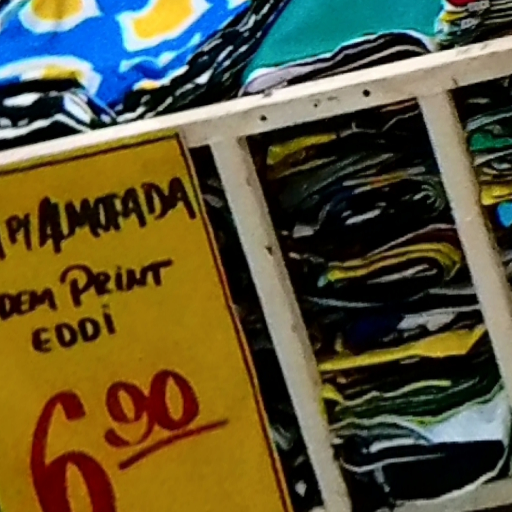 P/ALMOFADA
DEM PRINT
EDDI
6,90